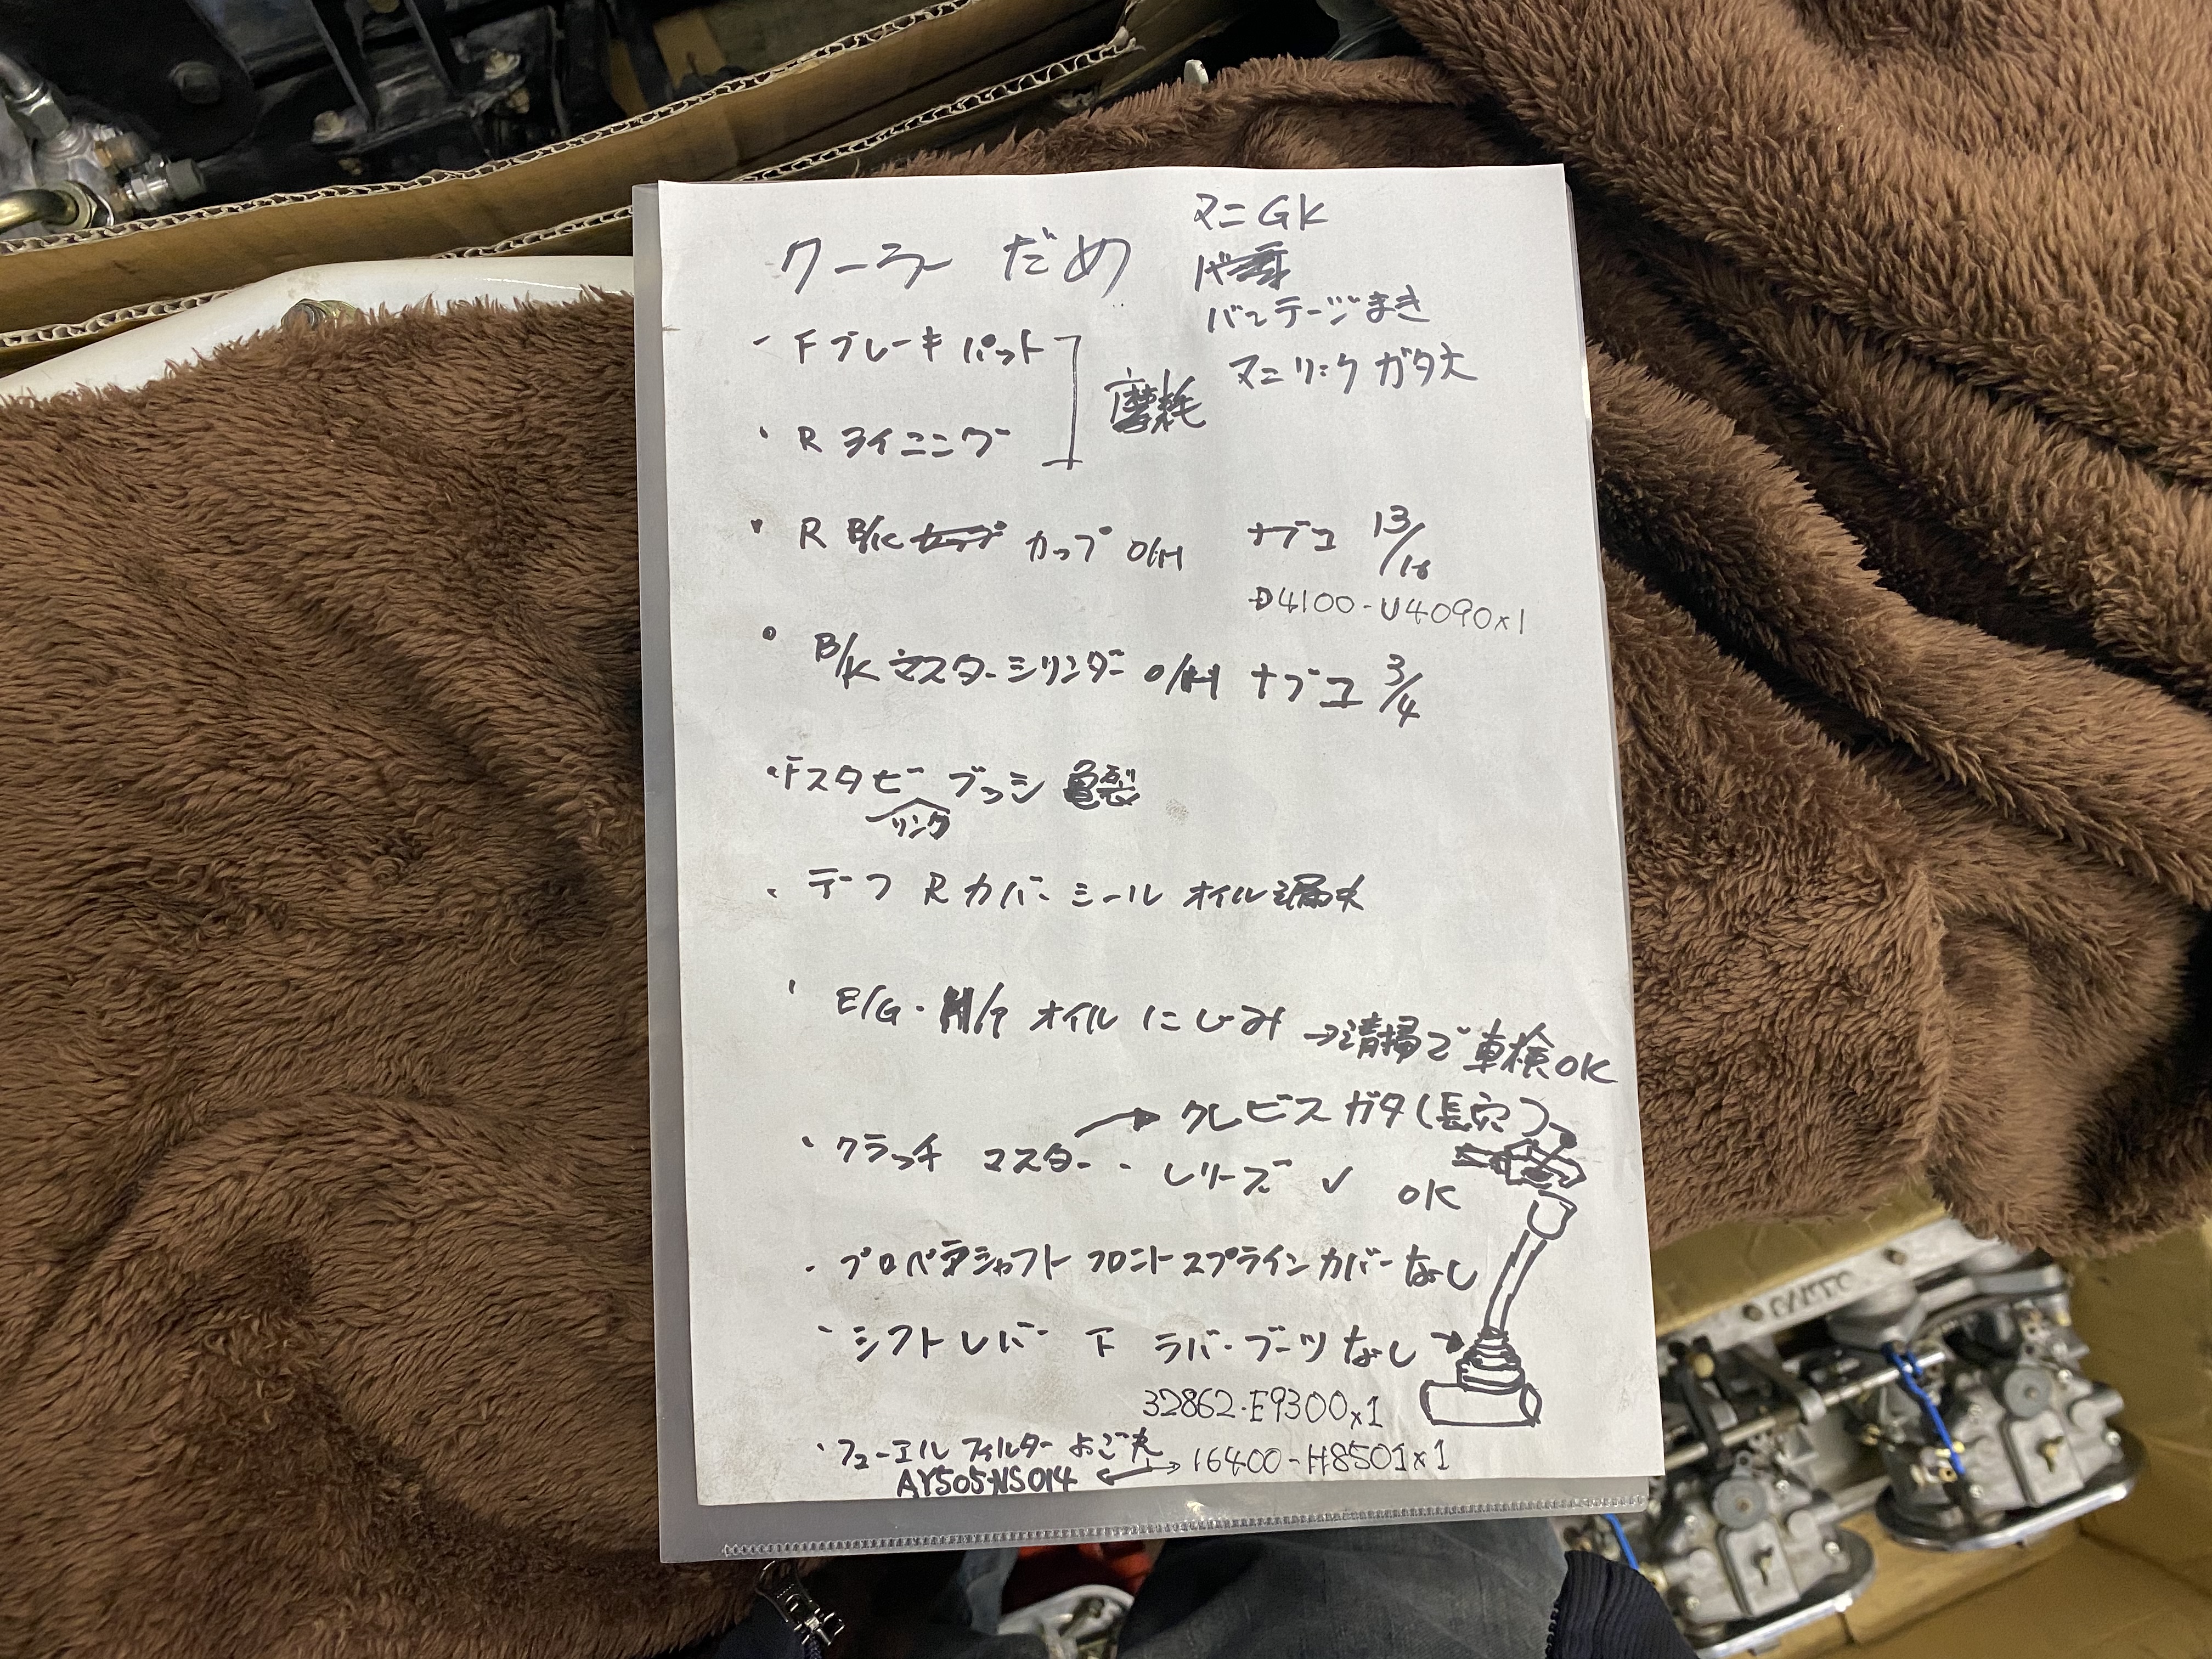 クーラー だめ
マニ GK
バンテージまき
マニ リーク ガタ大
・Fブレーキパット
・R ライニング
摩耗
・R B/K カップ O/H ナブコ 13/16
D4100-U4090x1
・B/K マスターシリンダー O/H ナブコ 3/4
・Fスタビーブッシ 亀裂
リンク
・デーフ Rカバーシール オイル漏れ
・E/G・M/T オイルにじみ →清掃で車検OK
→クレビスガタ(長穴)
・クラッチ マスター・レリーズ ✓ OK
・プロペラシャフト フロントスプラインカバーなし
・シフトレバー 下 ラバーブーツなし→
32862-E9300x1
・フューエルフィルター よごれ
16400-H8501x1
AY505-NS014